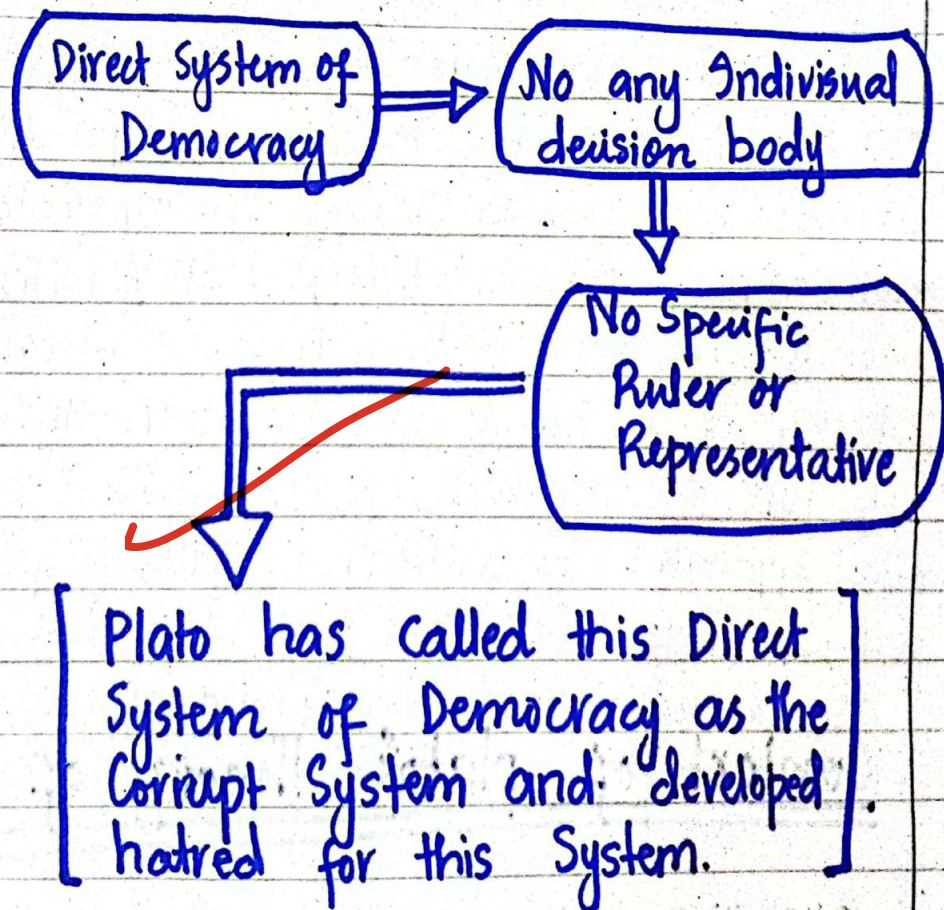 Direct System of
Democracy
No any Indivisual
decision body
No Specific
Ruler or
Representative
Plato has called this Direct
System of Democracy as the
Corrupt System and developed
hatred for this System.